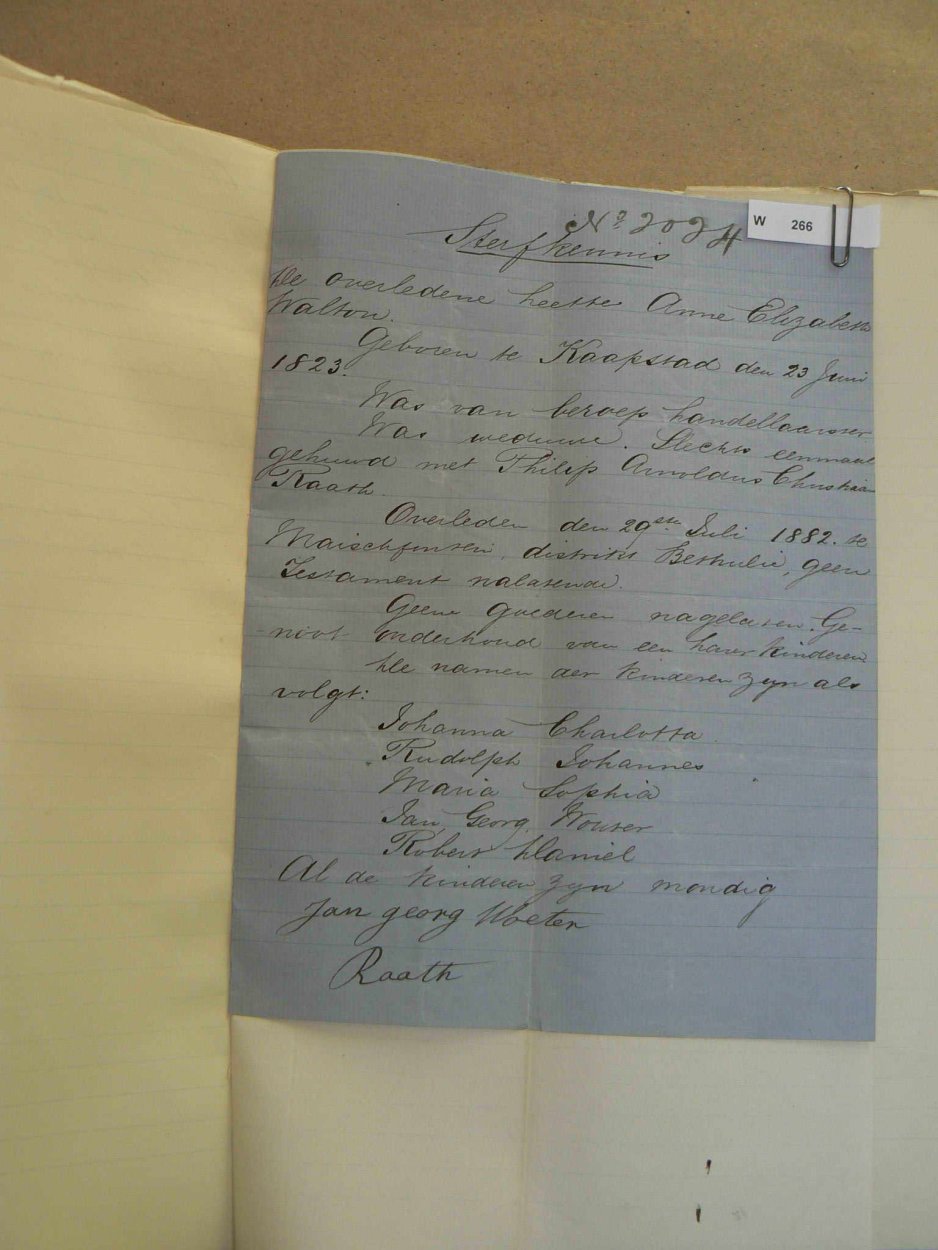 W 266
No 2024
Sterfkennis
De overledene heette Anne Elizabeth
Walton.
Geboren te Kaapstad den 23 Juni
1823.
Was van beroep handellaarster
Was weduwe. Slechts eenmaal
gehuwd met Philip Arnoldus Christiaan
Raath.
Overleden den 29ste Juli 1882. te
district Bethulie, geen
Testament nalatende.
Geene goederen nagelaten. Ge-
noot onderhoud van een harer kinderen
De namen der kinderen zyn als
volgt:
Johanna Charlotta
Rudolph Johannes
Maria Sophia
Jan Georg Wouter
Robert Daniel
Al de kinderen zyn mondig
Jan georg Woeter
Raath